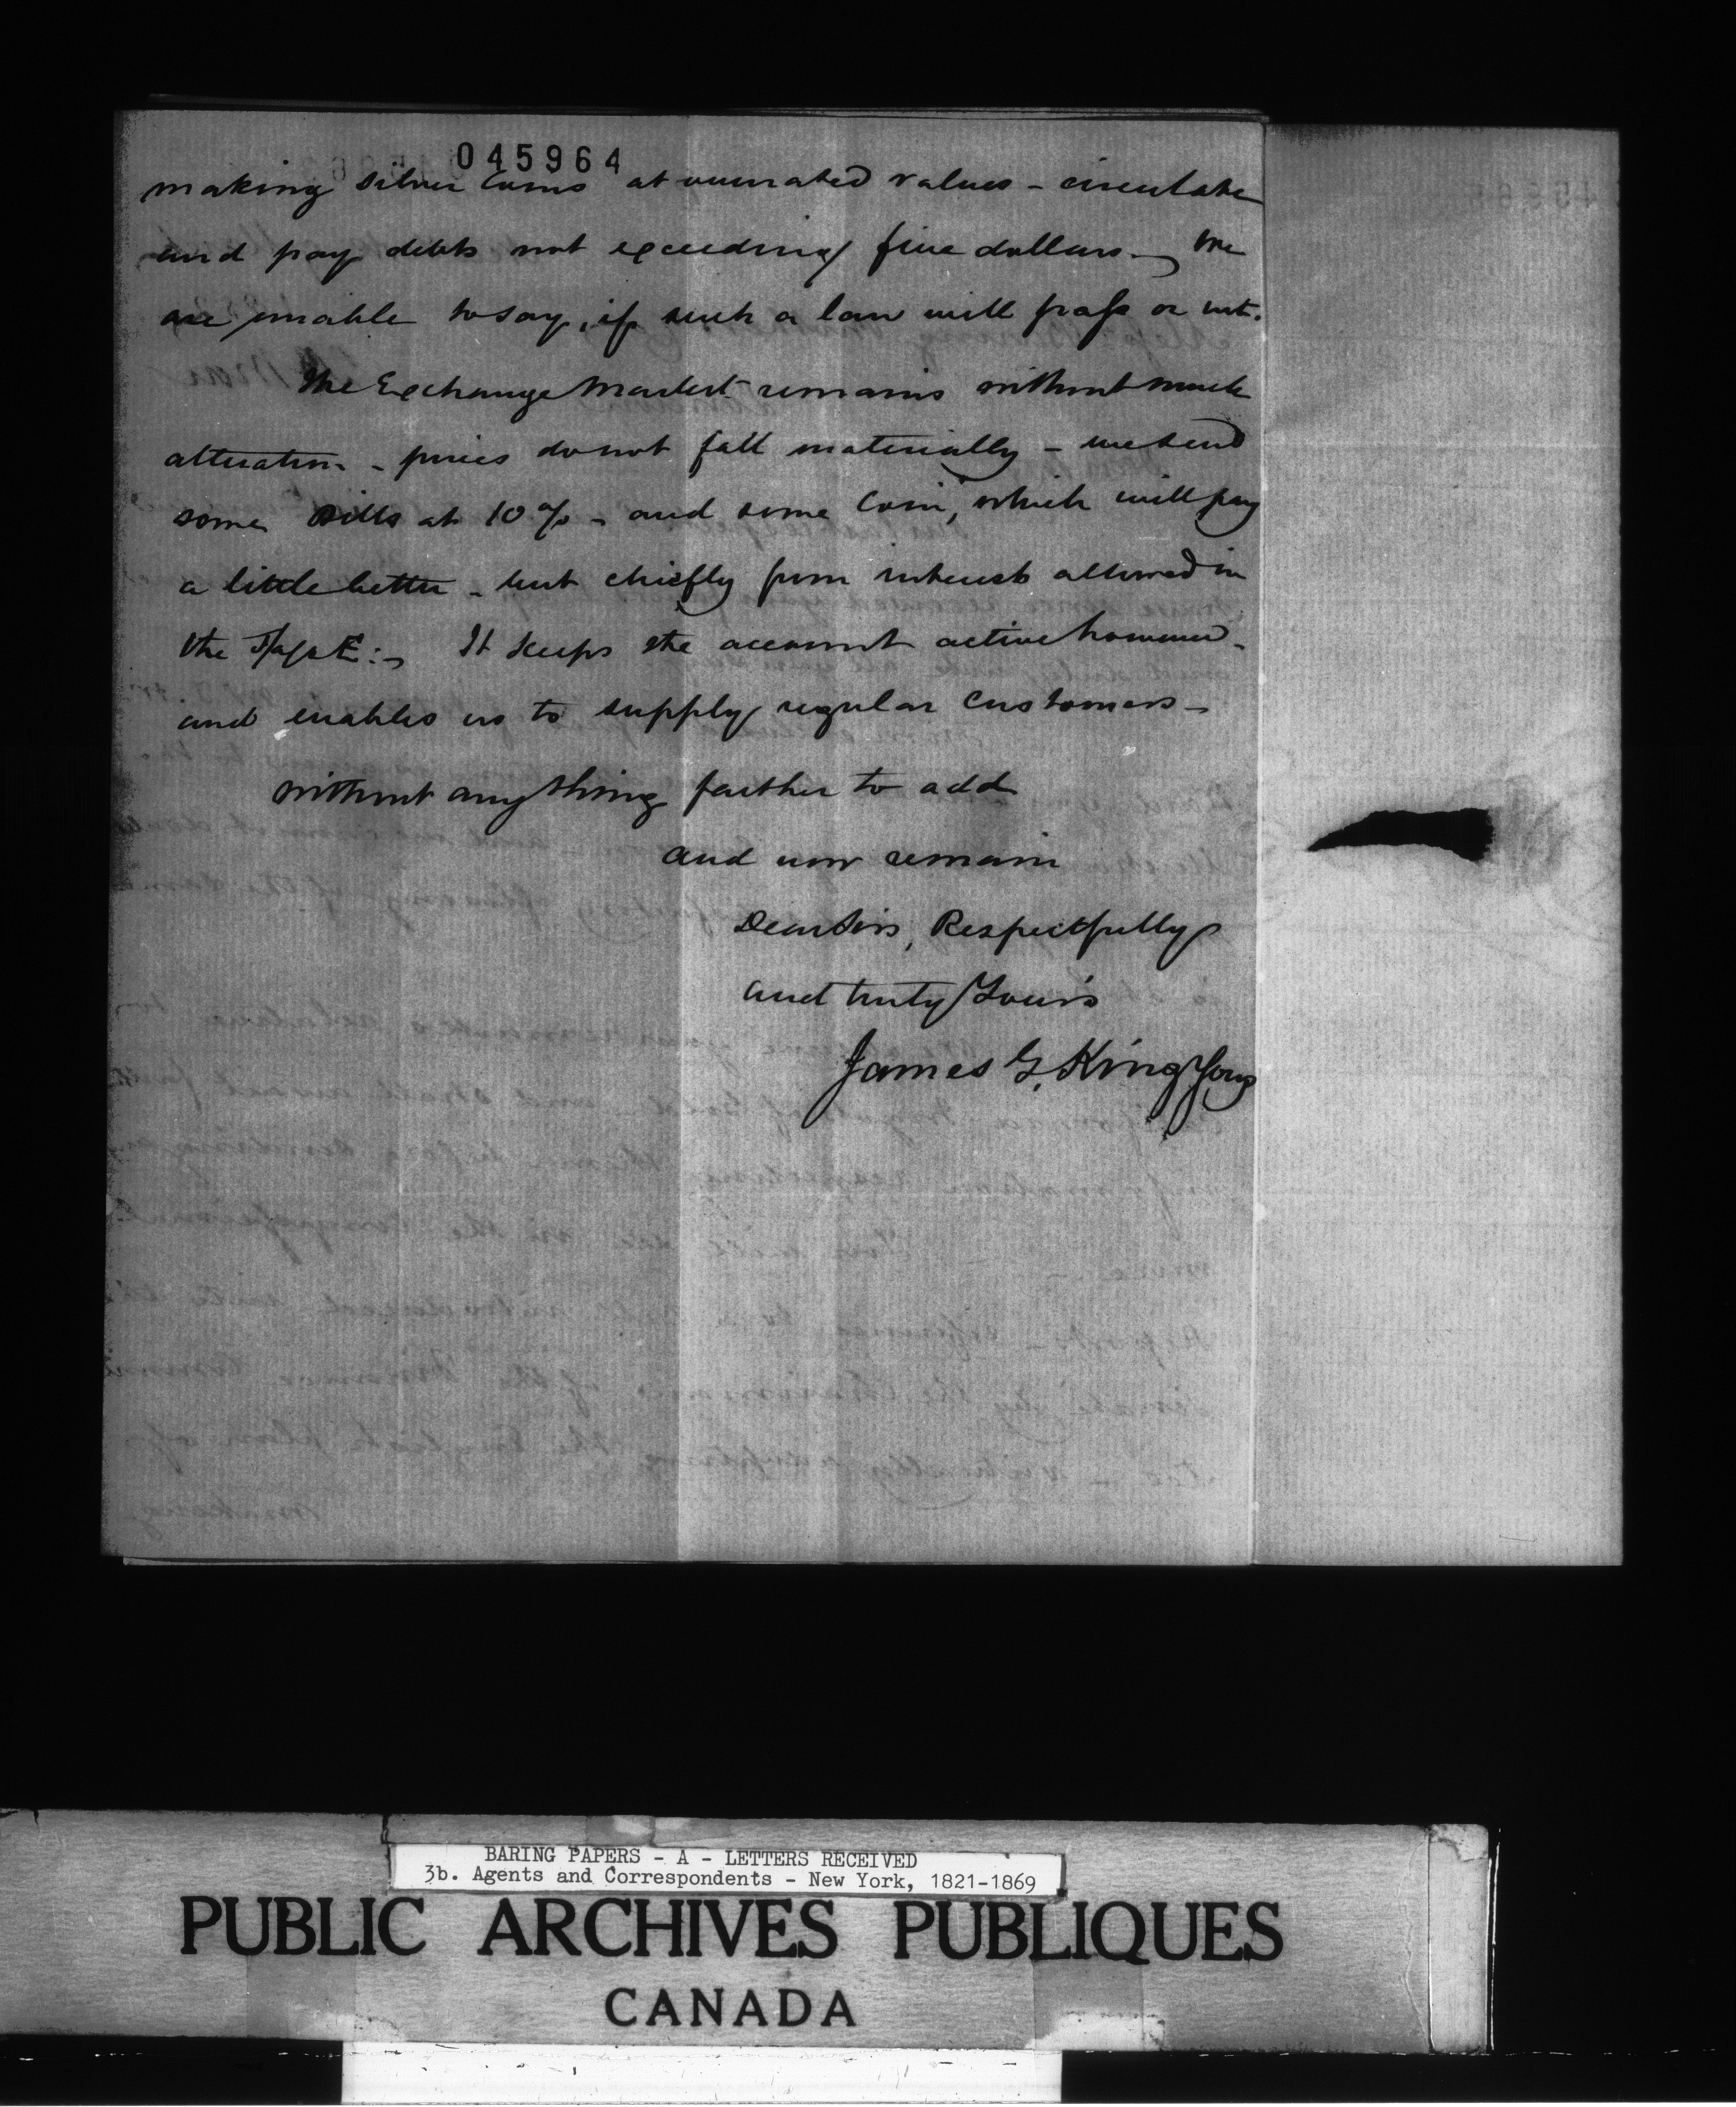 045964
making silver coins at overrated values - circulate
and pay debts not exceeding five dollars - We
are unable to say, if such a law will pass or not.
The Exchange Market remains without much
alteration - prices do not fall materially - we send
some Bills at 10% - and some Coin, which will pay
a little better - but chiefly from interest allowed in
the It keeps the account active however -
and enables us to supply regular customers -
without anything further to add
and now remain
Dear Sirs, Respectfully
and truly Yours
James G. King Sons
BARING PAPERS - A - LETTERS RECEIVED
3b. Agents and Correspondents - New York, 1821-1869
PUBLIC ARCHIVES PUBLIQUES
CANADA